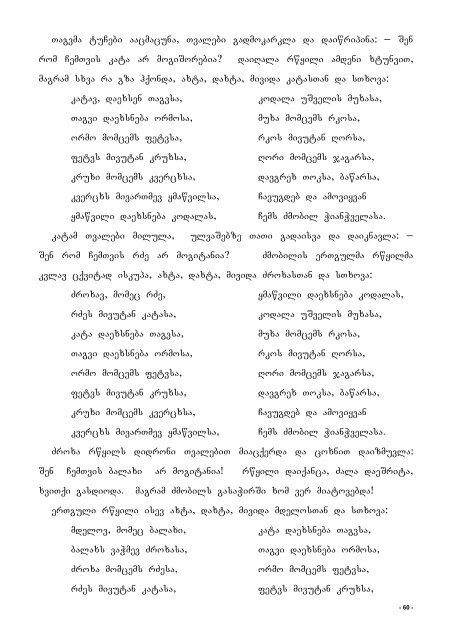 თაგვმა ტუჩები ააცმაცუნა, თვალები გადმოკარკლა და დაიწრიპინა: – შენ
რომ ჩემთვის კატა არ მოგიშორებია? დაიღალა რწყილი ამდენი ხტუნვით,
მაგრამ სხვა რა გზა ჰქონდა, ახტა, დახტა, მივიდა კატასთან და სთხოვა:
კატავ, დაეხსენ თაგვსა,
თაგვი დაეხსნება ორმოსა,
ორმო მომცემს ფეტვსა,
ფეტვს მივუტან კრუხსა,
კრუხი მომცემს კვერცხსა,
კვერცხს მივართმევ ყმაწვილსა,
ყმაწვილი დაეხსნება კოდალას,
კოდალა უშველის მუხასა,
მუხა მომცემს რკოსა,
რკოს მივუტან ღორსა,
ღორი მომცემს ჯაგარსა,
დავგრეხ თოკსა, ბაწარსა,
ჩავუგდებ და ამოვიყვან
ჩემს ძმობილ ჭიანჭველასა.
კატამ თვალები მილულა, ულვაშებზე თათი გადაისვა და დაიკნავლა: –
შენ რომ ჩემთვის რძე არ მოგიტანია? ძმობილის ერთგულმა რწყილმა
კვლავ ცქვიტად ისკუპა, ახტა, დახტა, მივიდა ძროხასთან და სთხოვა:
ძროხავ, მომეც რძე,
რძეს მივუტან კატასა,
კატა დაეხსნება თაგვსა,
თაგვი დაეხსნება ორმოსა,
ორმო მომცემს ფეტვსა,
ფეტვს მივუტან კრუხსა,
კრუხი მომცემს კვერცხსა,
კვერცხს მივართმევ ყმაწვილსა,
ყმაწვილი დაეხსნება კოდალას,
კოდალა უშველის მუხასა,
მუხა მომცემს რკოსა,
რკოს მივუტან ღორსა,
ღორი მომცემს ჯაგარსა,
დავგრეხ თოკსა, ბაწარსა,
ჩავუგდებ და ამოვიყვან
ჩემს ძმობილ ჭიანჭველასა.
ძროხა რწყილს დიდრონი თვალებით მიაცქერდა და ცოხნით დაიზმუვლა:
შენ ჩემთვის ბალახი არ მოგიტანია! რწყილი დაიქანცა, ძალა დაეშრიტა,
ხვითქი გასდიოდა. მაგრამ ძმობილს გასაჭირში ხომ ვერ მიატოვებდა!
ერთგული რწყილი ისევ ახტა, დახტა, მივიდა მდელოსთან და სთხოვა:
მდელოვ, მომეც ბალახი,
ბალახს ვაჭმევ ძროხასა,
ძროხა მომცემს რძესა,
რძეს მივუტან კატასა,
კატა დაეხსნება თაგვსა,
თაგვი დაეხსნება ორმოსა,
ორმო მომცემს ფეტვსა,
ფეტვს მივუტან კრუხსა,
- 60 -